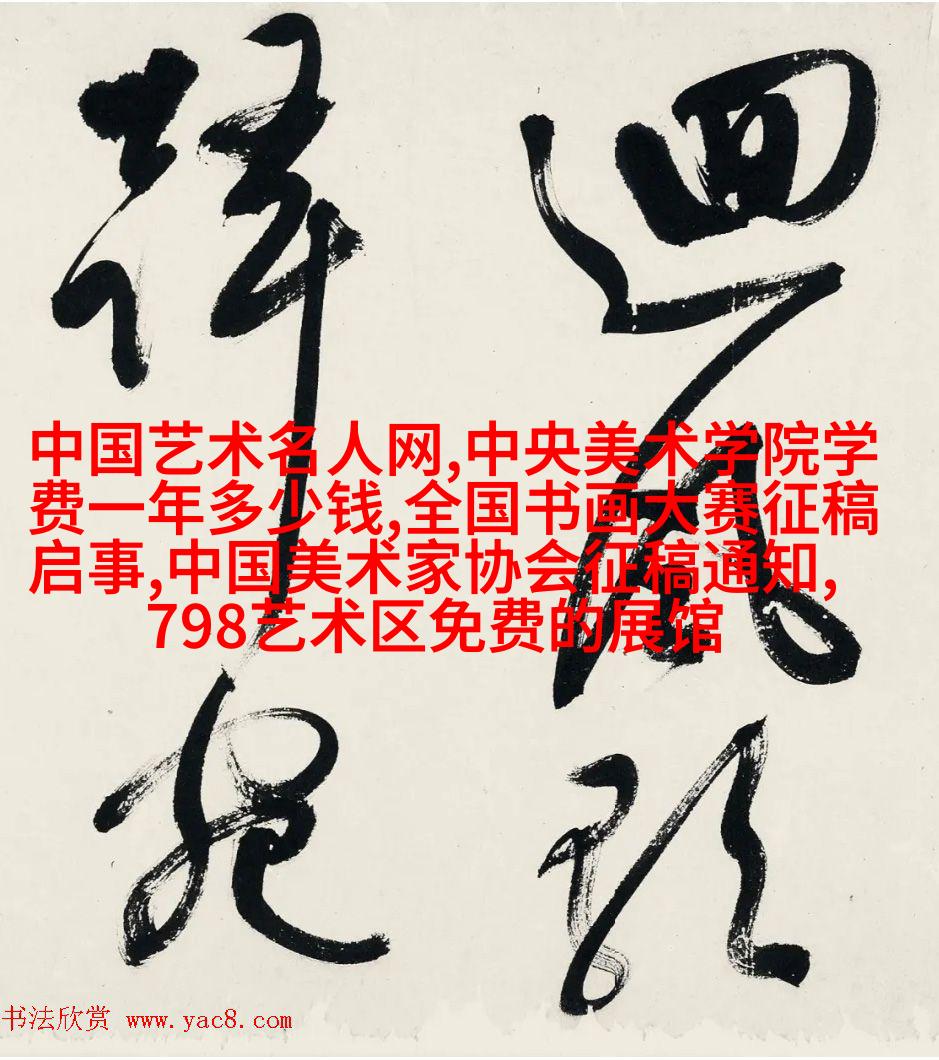 迴風
中国艺术名人网,中央美术学院学
费一年多少钱,全国书画大赛征稿
启事,中国美术家协会征稿通知,
798艺术区免费的展馆
书法欣赏 www.yac8.com